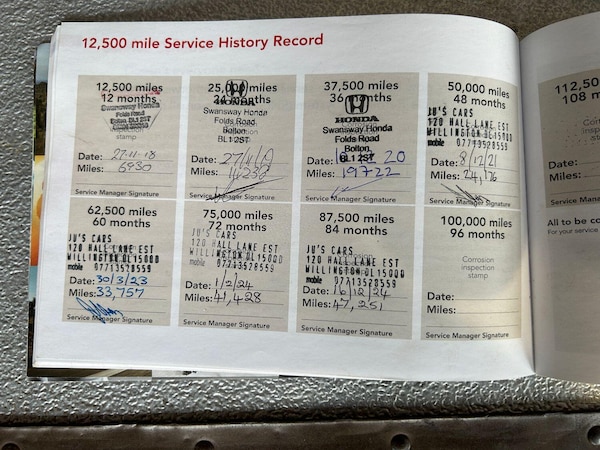 12,500 mile Service History Record
12,500 miles
12 months
Swansway Honda
Folds Road
Bolton BL1 2ST
stamp
Date: 27-11-18
Miles: 6930
Service Manager Signature
25,000 miles
24 months
HONDA
Swansway Honda
Folds Road
Bolton
BL1 2ST
Date:
Miles:
Service Manager Signature
37,500 miles
36 months
HONDA
Swansway Honda
Folds Road
Bolton
BL1 2ST
Date: 20
Miles: 19722
Service Manager Signature
50,000 miles
48 months
JU'S CARS
120 HALL LANE EST
WILLINGTON DL15 0QD
mobile 07713528559
Date: 8/12/21
Miles: 24,176
Service Manager Signature
62,500 miles
60 months
JU'S CARS
120 HALL LANE EST
WILLINGTON DL15 0QD
mobile 07713528559
Date: 30/3/23
Miles: 33,757
Service Manager Signature
75,000 miles
72 months
JU'S CARS
120 HALL LANE EST
WILLINGTON DL15 0QD
mobile 07713528559
Date: 1/2/24
Miles: 41,428
Service Manager Signature
87,500 miles
84 months
JU'S CARS
120 HALL LANE EST
WILLINGTON DL15 0QD
mobile 07713528559
Date: 16/12/24
Miles: 47,251
Service Manager Signature
100,000 miles
96 months
Corrosion
inspection
stamp
Date:
Miles:
Service Manager Signature
112,50
108 m
Date:
Miles:
Service Man
All to be co
For your service